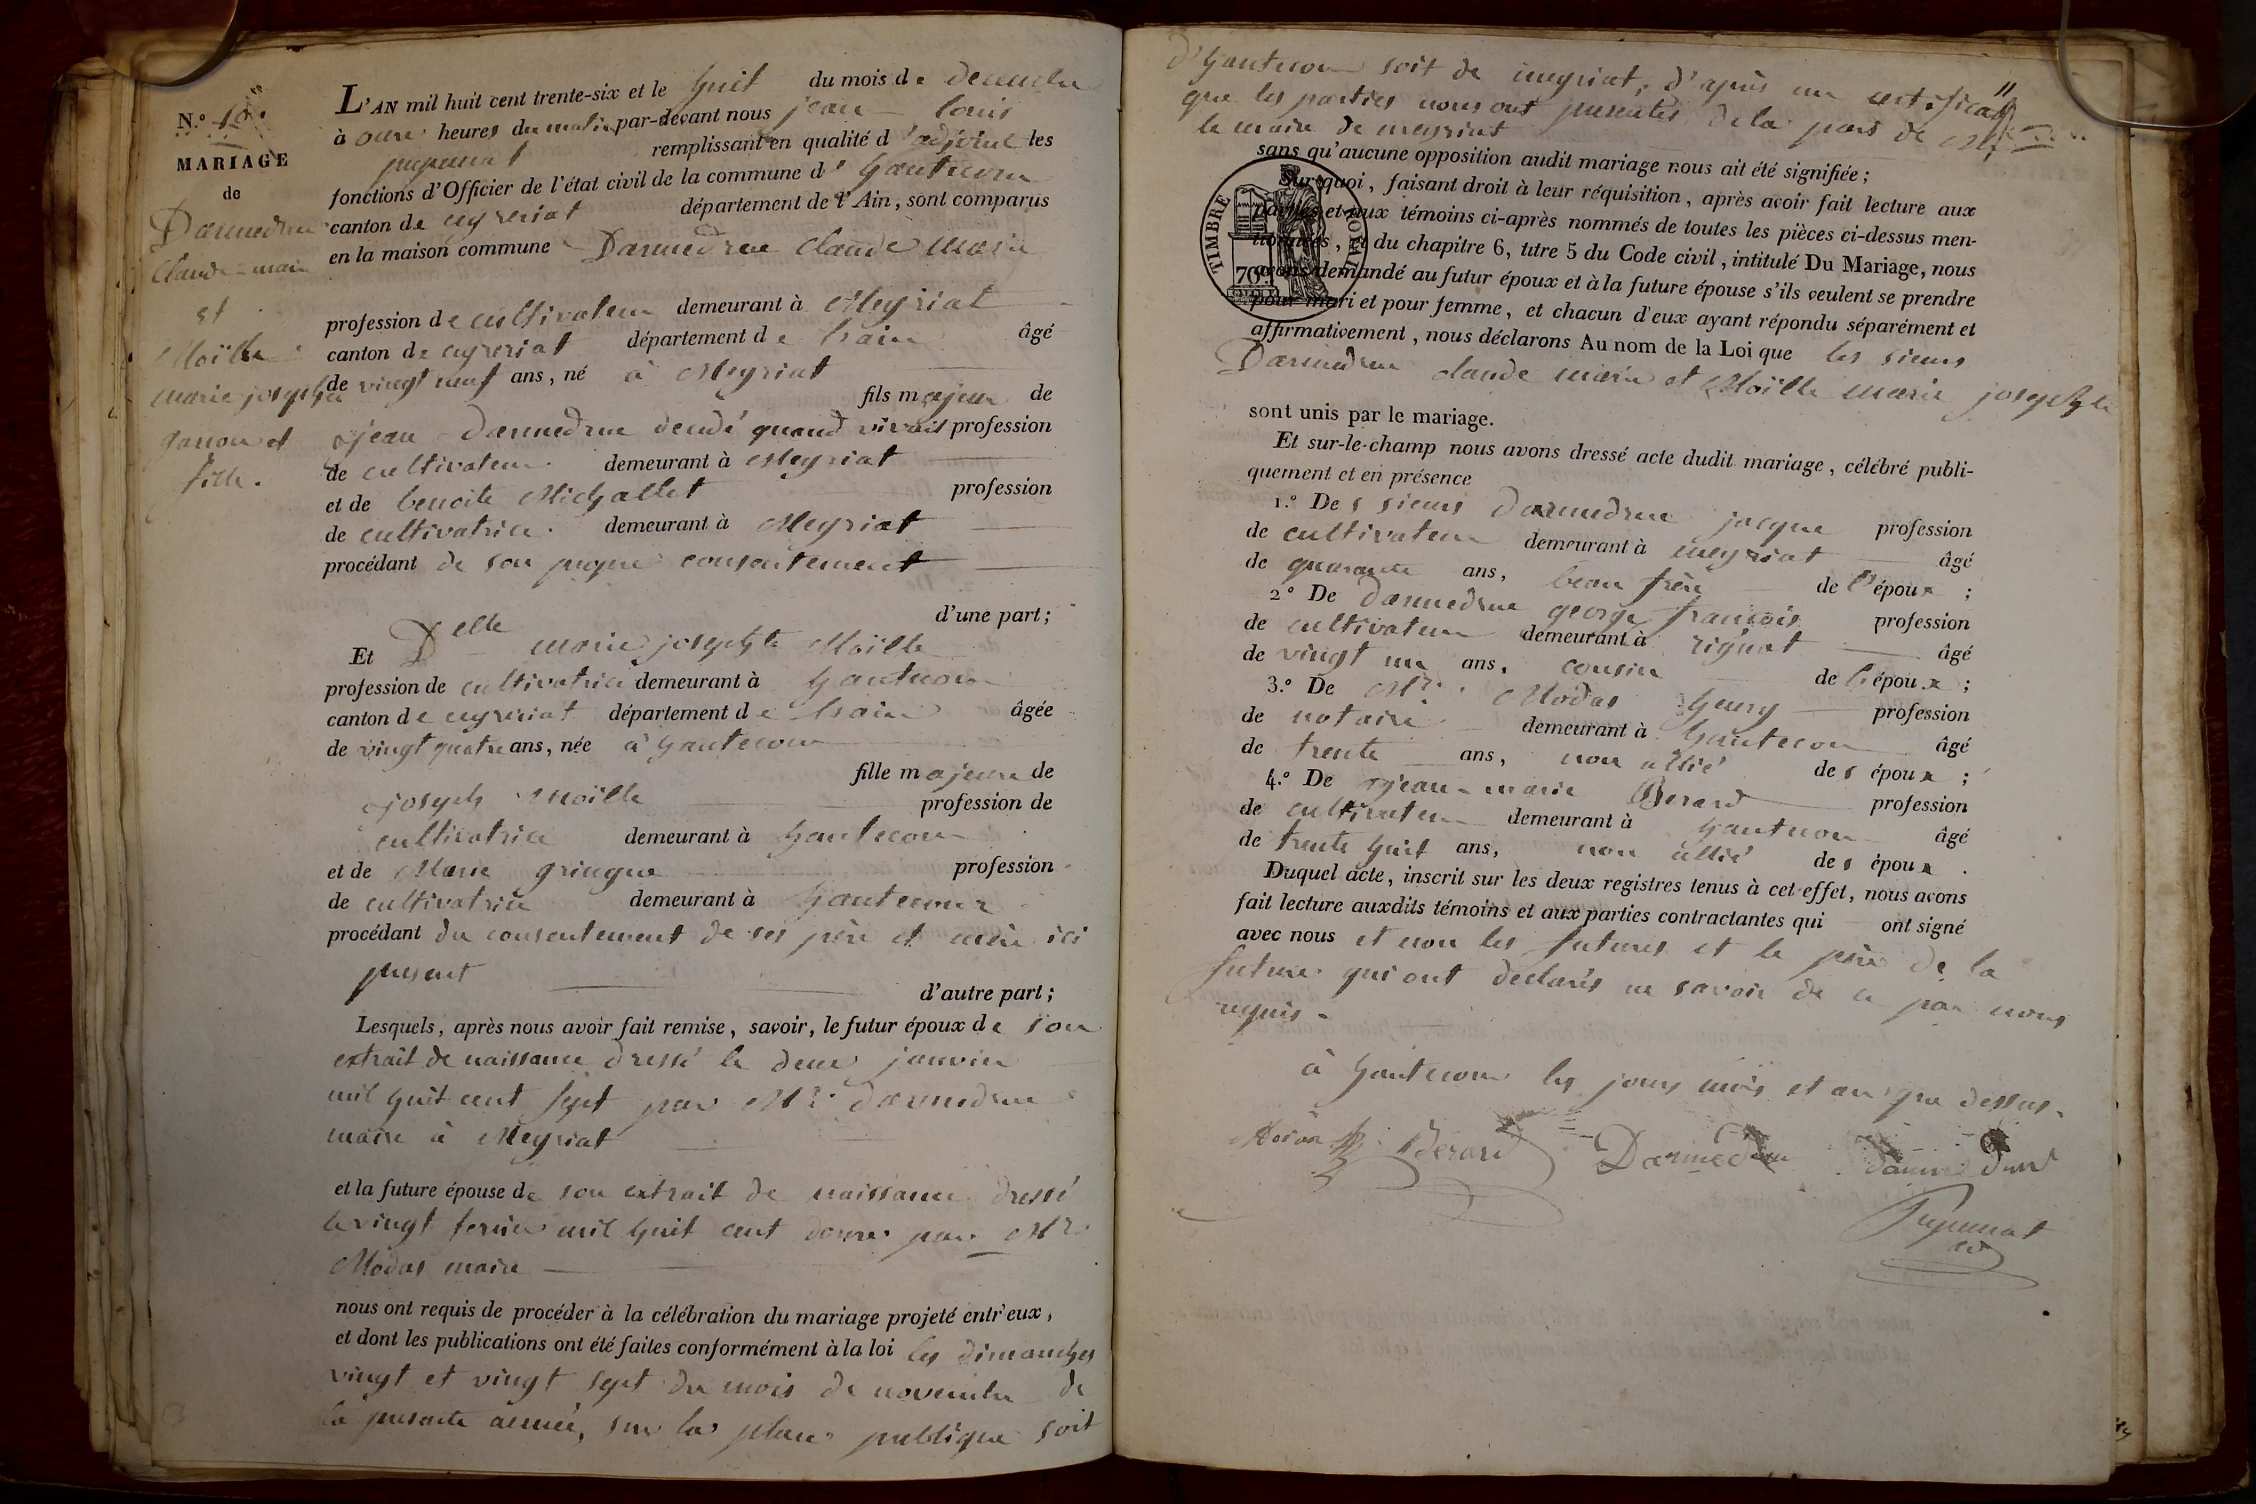 N.º 10.
MARIAGE
de
Darmedru
claude-marie
et
Moïlle
marie josephte
garcon et
fille.
L'AN mil huit cent trente-six et le huit du mois de decembre
à onze heures du matin par-devant nous jean louis
remplissant en qualité d'adjoint les
fonctions d'Officier de l'état civil de la commune d'hautecour
canton de ceyzeriat département de l'Ain, sont comparus
en la maison commune Darmedru claude marie
profession de cultivateur demeurant à Meyriat
canton de ceyzeriat département de l'ain âgé
de vingt neuf ans, né à Meyriat
fils majeur de
jean darmedru décédé quand vivait profession
de cultivateur demeurant à Meyriat
et de benoite Michallet profession
de cultivatrice demeurant à Meyriat
procédant de son propre consentement
d'une part;
Et Delle marie josephte Moïlle
profession de cultivatrice demeurant à hautecour
canton de ceyzeriat département de l'ain âgée
de vingt quatre ans, née à hautecour
fille majeure de
joseph Moïlle profession de
cultivatrice demeurant à hautecour
et de Marie gringue profession
de cultivatrice demeurant à hautecour
procédant du consentement de ses père et mère ici
present
d'autre part;
Lesquels, après nous avoir fait remise, savoir, le futur époux de son
extrait de naissance dressé le deux janvier
mil huit cent sept par Mr. darmedru
maire à Meyriat
et la future épouse de son extrait de naissance dressé
le vingt fevrier mil huit cent douze par Mr.
Modas maire
nous ont requis de procéder à la célébration du mariage projeté entr'eux,
et dont les publications ont été faites conformément à la loi les dimanches
vingt et vingt sept du mois de novembre de
la presente année, sur la place publique soit
d'hautecour soit de meyriat, d'après un certificat
que les parties nous ont presentés de la part de Mr.
le maire de meyriat
sans qu'aucune opposition audit mariage nous ait été signifiée;
Sur quoi, faisant droit à leur réquisition, après avoir fait lecture aux
parties et aux témoins ci-après nommés de toutes les pièces ci-dessus men-
tionnées, et du chapitre 6, titre 5 du Code civil, intitulé Du Mariage, nous
avons demandé au futur époux et à la future épouse s'ils veulent se prendre
pour mari et pour femme, et chacun d'eux ayant répondu séparément et
affirmativement, nous déclarons Au nom de la Loi que les sieurs
Darmedru claude marie et Moïlle marie josephte
sont unis par le mariage.
Et sur-le-champ nous avons dressé acte dudit mariage, célébré publi-
quement et en présence
1.º Des sieurs darmedru jacque profession
de cultivateur demeurant à meyriat âgé
de quarante ans, beau frère de l'époux;
2º De darmedru george françois profession
de cultivateur demeurant à rignat âgé
de vingt un ans, cousin de l'époux;
3.º De Mr. Modas henry profession
de notaire demeurant à hautecour âgé
de trente ans, non allié des époux;
4.º De jean-marie Berard profession
de cultivateur demeurant à hautecour âgé
de trente huit ans, non allié des époux.
Duquel acte, inscrit sur les deux registres tenus à cet effet, nous avons
fait lecture auxdits témoins et aux parties contractantes qui ont signé
avec nous et non les futures et le père de la
future qui ont déclarés ne savoir de ce par nous
requis.
à hautecour les jours mois et an que dessus.
Berard Darmedru
TIMBRE ROYAL
70